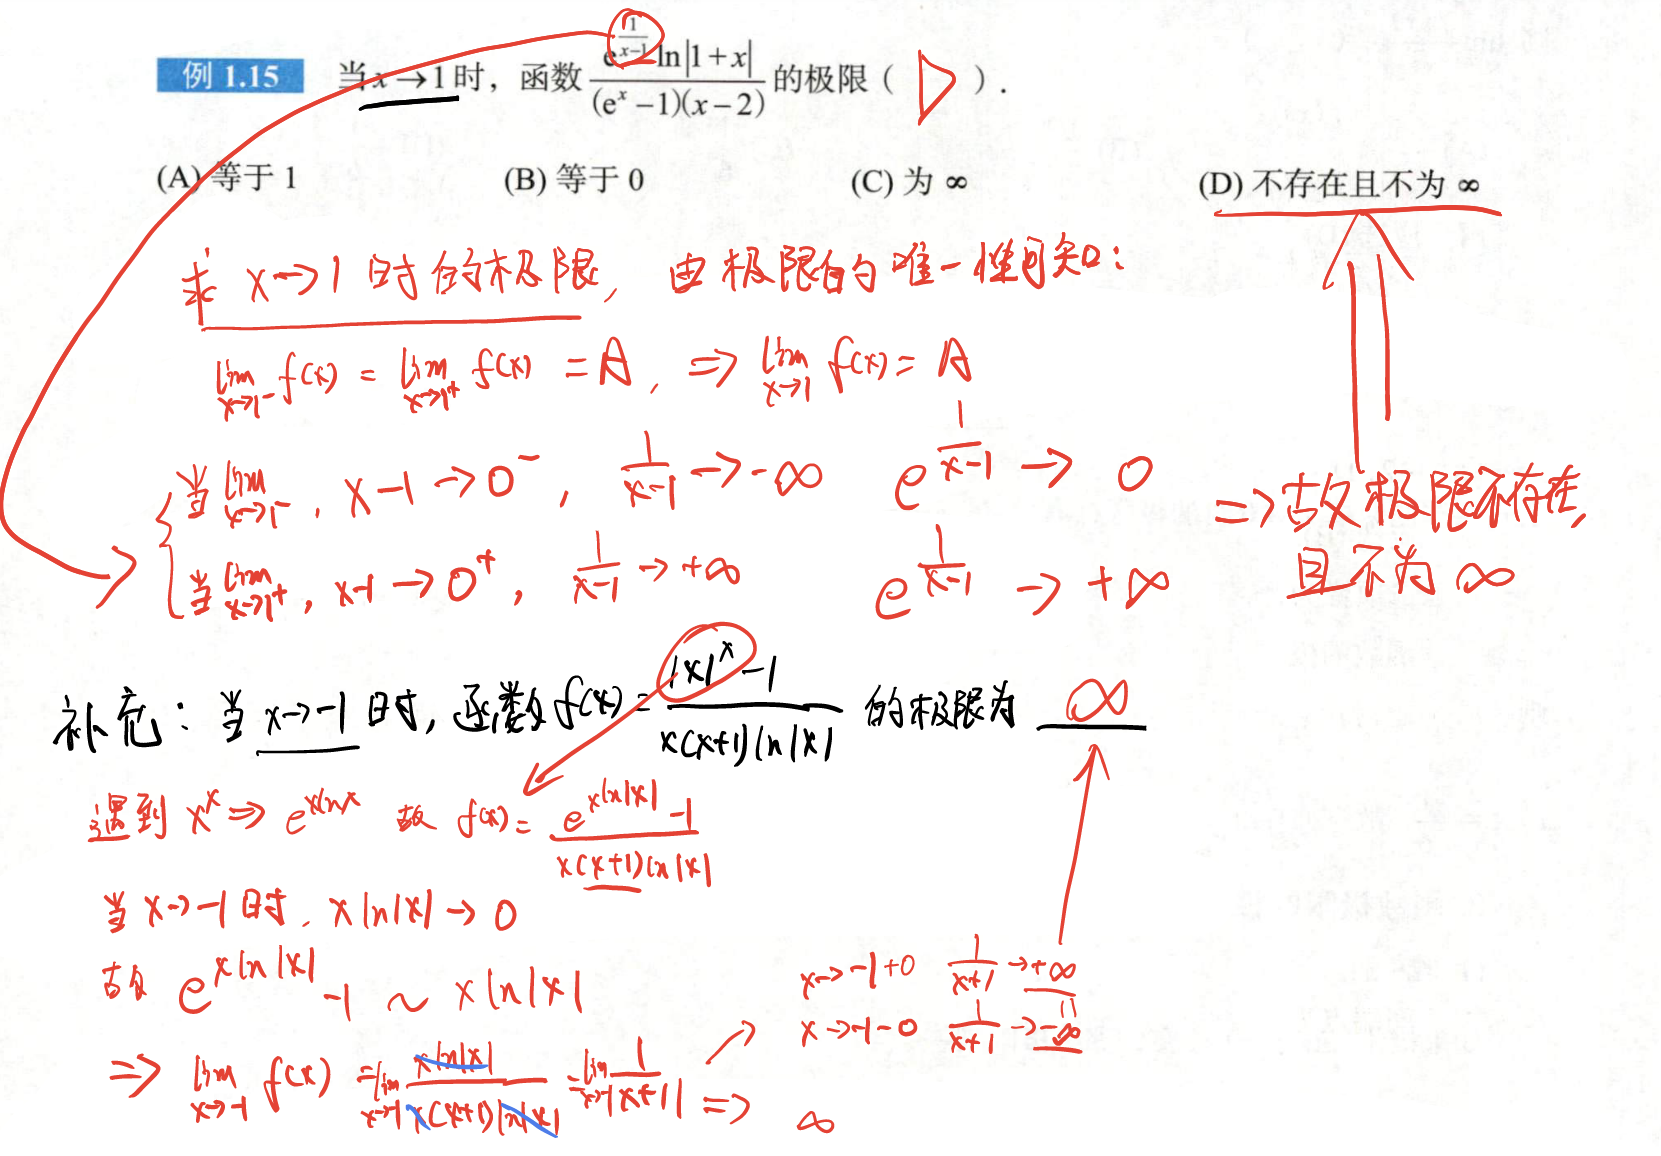 例 1.15 当 x→1 时，函数 \frac{e^{\frac{1}{x-1}} ln|1+x|}{(e^x-1)(x-2)} 的极限（ D ）.
(A) 等于 1 (B) 等于 0 (C) 为 ∞ (D) 不存在且不为 ∞
求 x→1 时的极限, 由极限的唯一性可知:
\lim_{x→1^-} f(x) = \lim_{x→1^+} f(x) = A, ⇒ \lim_{x→1} f(x) = A
当 \lim_{x→1^-}, x-1→0^-, \frac{1}{x-1}→-∞ e^{\frac{1}{x-1}}→0
当 \lim_{x→1^+}, x-1→0^+, \frac{1}{x-1}→+∞ e^{\frac{1}{x-1}}→+∞
⇒故极限不存在,
且不为 ∞
补充: 当 x→-1 时, 函数 f(x) = \frac{|x|^x-1}{x(x+1)ln|x|} 的极限为 ∞
遇到 x^x ⇒ e^{xlnx} 故 f(x) = \frac{e^{xln|x|}-1}{x(x+1)ln|x|}
当 x→-1 时, xln|x|→0
故 e^{xln|x|}-1 ~ xln|x|
⇒ \lim_{x→-1} f(x) = \lim_{x→-1} \frac{xln|x|}{x(x+1)ln|x|} = \lim_{x→-1} \frac{1}{x+1} ⇒ ∞
x→-1+0 \frac{1}{x+1}→+∞
x→-1-0 \frac{1}{x+1}→-∞